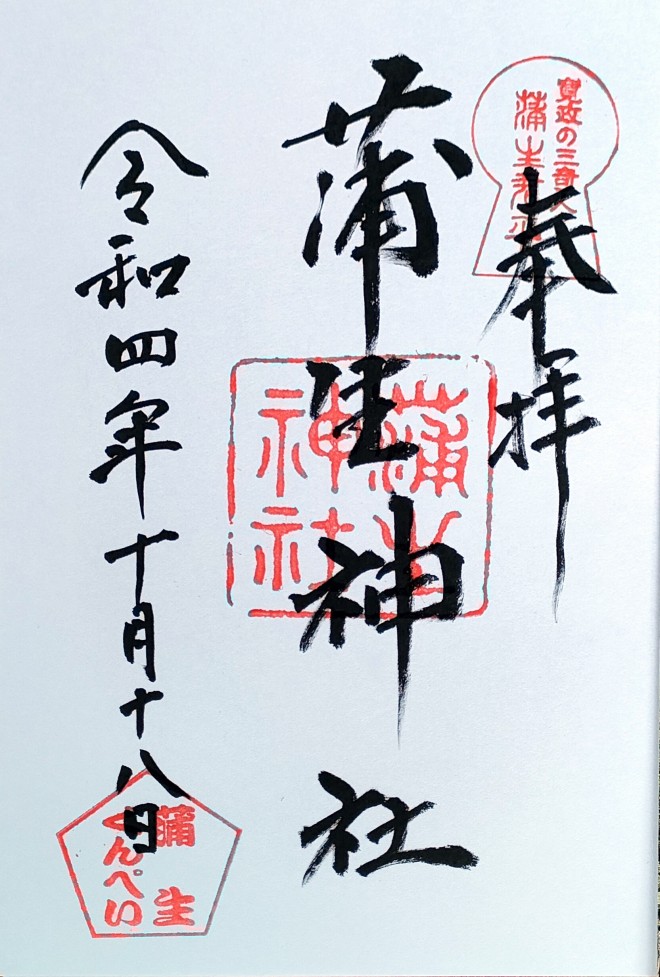 寛政の三奇人
蒲生君平
奉拝
蒲生神社
蒲生
神社
令和四年十月十八日
蒲生
くんぺい